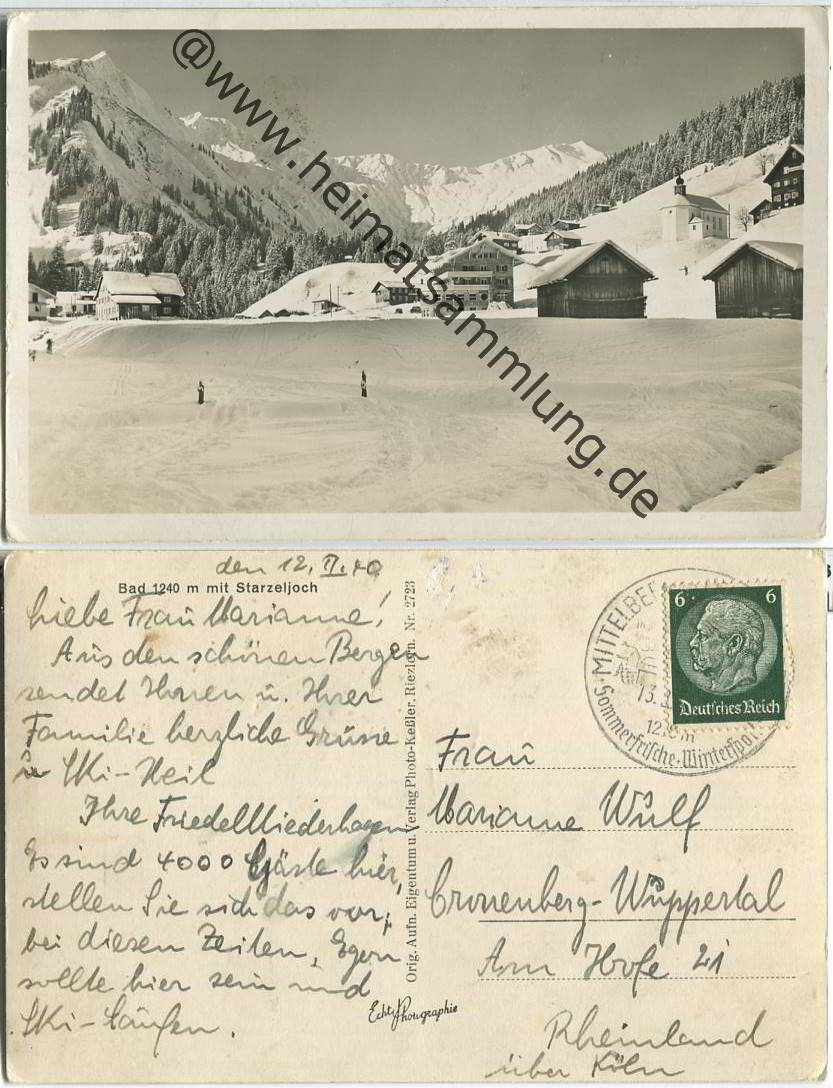 @www.heimatsammlung.de
den 12. II. 40
Bad 1240 m mit Starzeljoch
Liebe Frau Marianne!
Aus den schönen Bergen
sendet Ihnen u. Ihrer
Familie herzliche Grüsse
Ski-Heil
Ihre Friedel Niederhagen
Es sind 4000 Gäste hier,
stellen Sie sich das vor,
bei diesen Zeiten, Egon
sollte hier sein und
Ski-Laufen.
Orig. Aufn. Eigentum u. Verlag Photo-Keßler, Riezlern. Nr. 2723
Echte Photographie
MITTELBE
13.
Sommerfrische-Winterspor
6 6
Deutsches Reich
Frau
Marianne Wulf
Cronenberg-Wuppertal
Am Hofe 21
Rheinland
über Köln